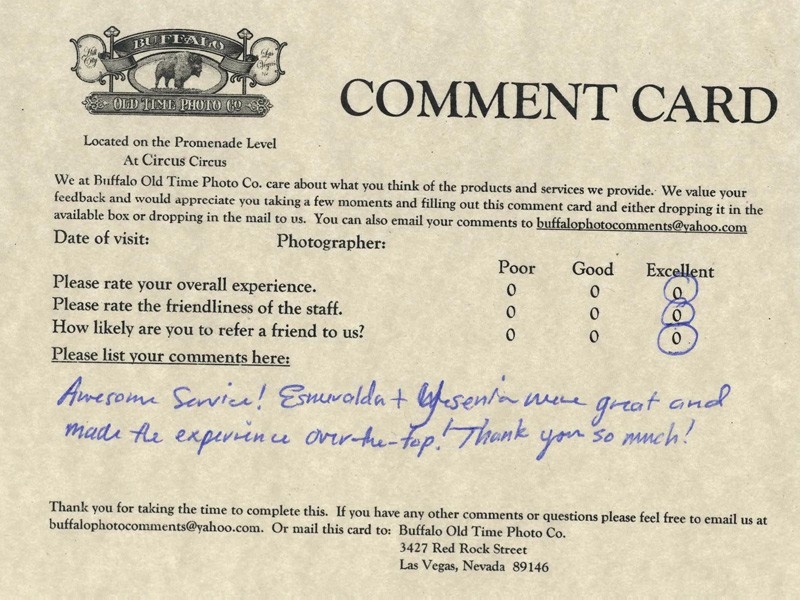 BUFFALO
Hill City
Las Vegas
OLD TIME PHOTO CO
COMMENT CARD
Located on the Promenade Level
At Circus Circus
We at Buffalo Old Time Photo Co. care about what you think of the products and services we provide. We value your
feedback and would appreciate you taking a few moments and filling out this comment card and either dropping it in the
available box or dropping in the mail to us. You can also email your comments to buffalophotocomments@yahoo.com
Date of visit: Photographer:
Poor Good Excellent
Please rate your overall experience. 0 0 0
Please rate the friendliness of the staff. 0 0 0
How likely are you to refer a friend to us? 0 0 0
Please list your comments here:
Awesome Service! Esmeralda + Yesenia were great and
made the experience over-the-top! Thank you so much!
Thank you for taking the time to complete this. If you have any other comments or questions please feel free to email us at
buffalophotocomments@yahoo.com. Or mail this card to: Buffalo Old Time Photo Co.
3427 Red Rock Street
Las Vegas, Nevada 89146